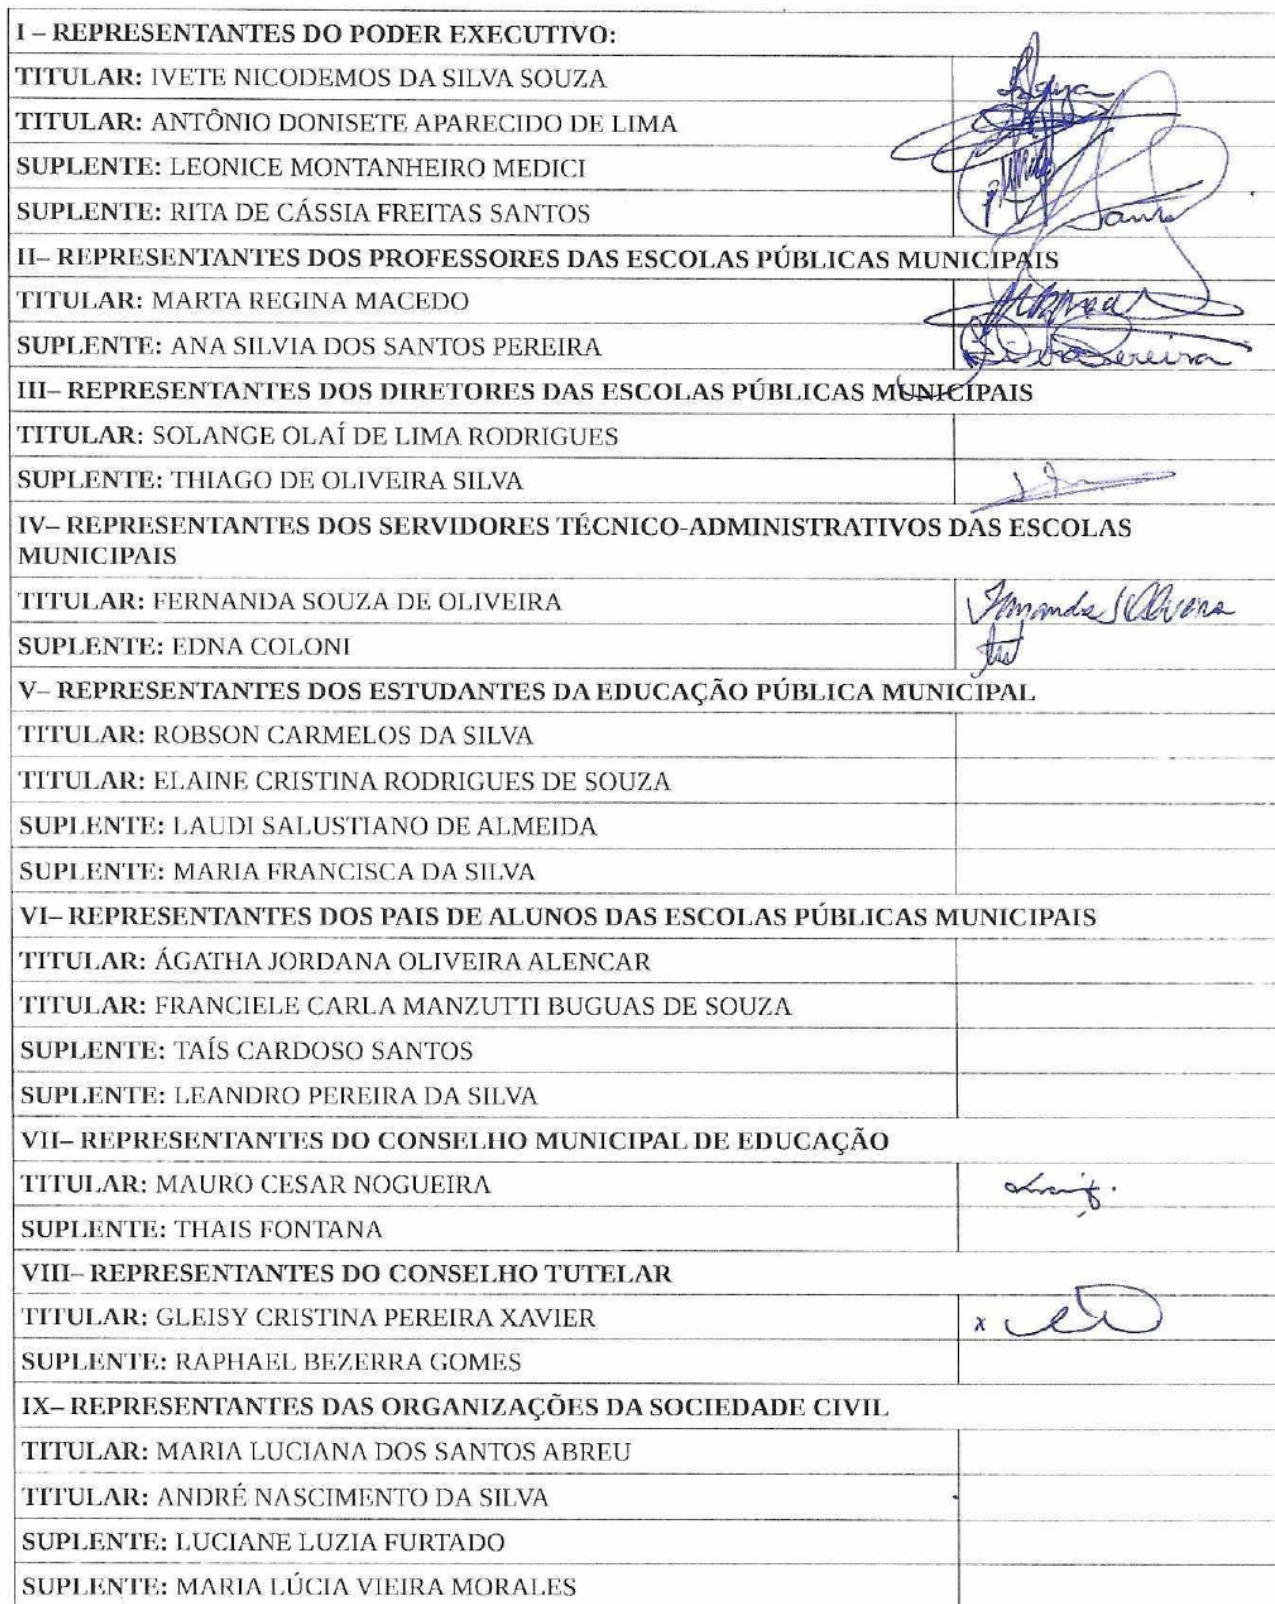 I – REPRESENTANTES DO PODER EXECUTIVO:
TITULAR: IVETE NICODEMOS DA SILVA SOUZA
TITULAR: ANTÔNIO DONISETE APARECIDO DE LIMA
SUPLENTE: LEONICE MONTANHEIRO MEDICI
SUPLENTE: RITA DE CÁSSIA FREITAS SANTOS
II– REPRESENTANTES DOS PROFESSORES DAS ESCOLAS PÚBLICAS MUNICIPAIS
TITULAR: MARTA REGINA MACEDO
SUPLENTE: ANA SILVIA DOS SANTOS PEREIRA
III– REPRESENTANTES DOS DIRETORES DAS ESCOLAS PÚBLICAS MUNICIPAIS
TITULAR: SOLANGE OLAÍ DE LIMA RODRIGUES
SUPLENTE: THIAGO DE OLIVEIRA SILVA
IV– REPRESENTANTES DOS SERVIDORES TÉCNICO-ADMINISTRATIVOS DAS ESCOLAS
MUNICIPAIS
TITULAR: FERNANDA SOUZA DE OLIVEIRA
SUPLENTE: EDNA COLONI
V– REPRESENTANTES DOS ESTUDANTES DA EDUCAÇÃO PÚBLICA MUNICIPAL
TITULAR: ROBSON CARMELOS DA SILVA
TITULAR: ELAINE CRISTINA RODRIGUES DE SOUZA
SUPLENTE: LAUDI SALUSTIANO DE ALMEIDA
SUPLENTE: MARIA FRANCISCA DA SILVA
VI– REPRESENTANTES DOS PAIS DE ALUNOS DAS ESCOLAS PÚBLICAS MUNICIPAIS
TITULAR: ÁGATHA JORDANA OLIVEIRA ALENCAR
TITULAR: FRANCIELE CARLA MANZUTTI BUGUAS DE SOUZA
SUPLENTE: TAÍS CARDOSO SANTOS
SUPLENTE: LEANDRO PEREIRA DA SILVA
VII– REPRESENTANTES DO CONSELHO MUNICIPAL DE EDUCAÇÃO
TITULAR: MAURO CESAR NOGUEIRA
SUPLENTE: THAIS FONTANA
VIII– REPRESENTANTES DO CONSELHO TUTELAR
TITULAR: GLEISY CRISTINA PEREIRA XAVIER x
SUPLENTE: RAPHAEL BEZERRA GOMES
IX– REPRESENTANTES DAS ORGANIZAÇÕES DA SOCIEDADE CIVIL
TITULAR: MARIA LUCIANA DOS SANTOS ABREU
TITULAR: ANDRÉ NASCIMENTO DA SILVA
SUPLENTE: LUCIANE LUZIA FURTADO
SUPLENTE: MARIA LÚCIA VIEIRA MORALES